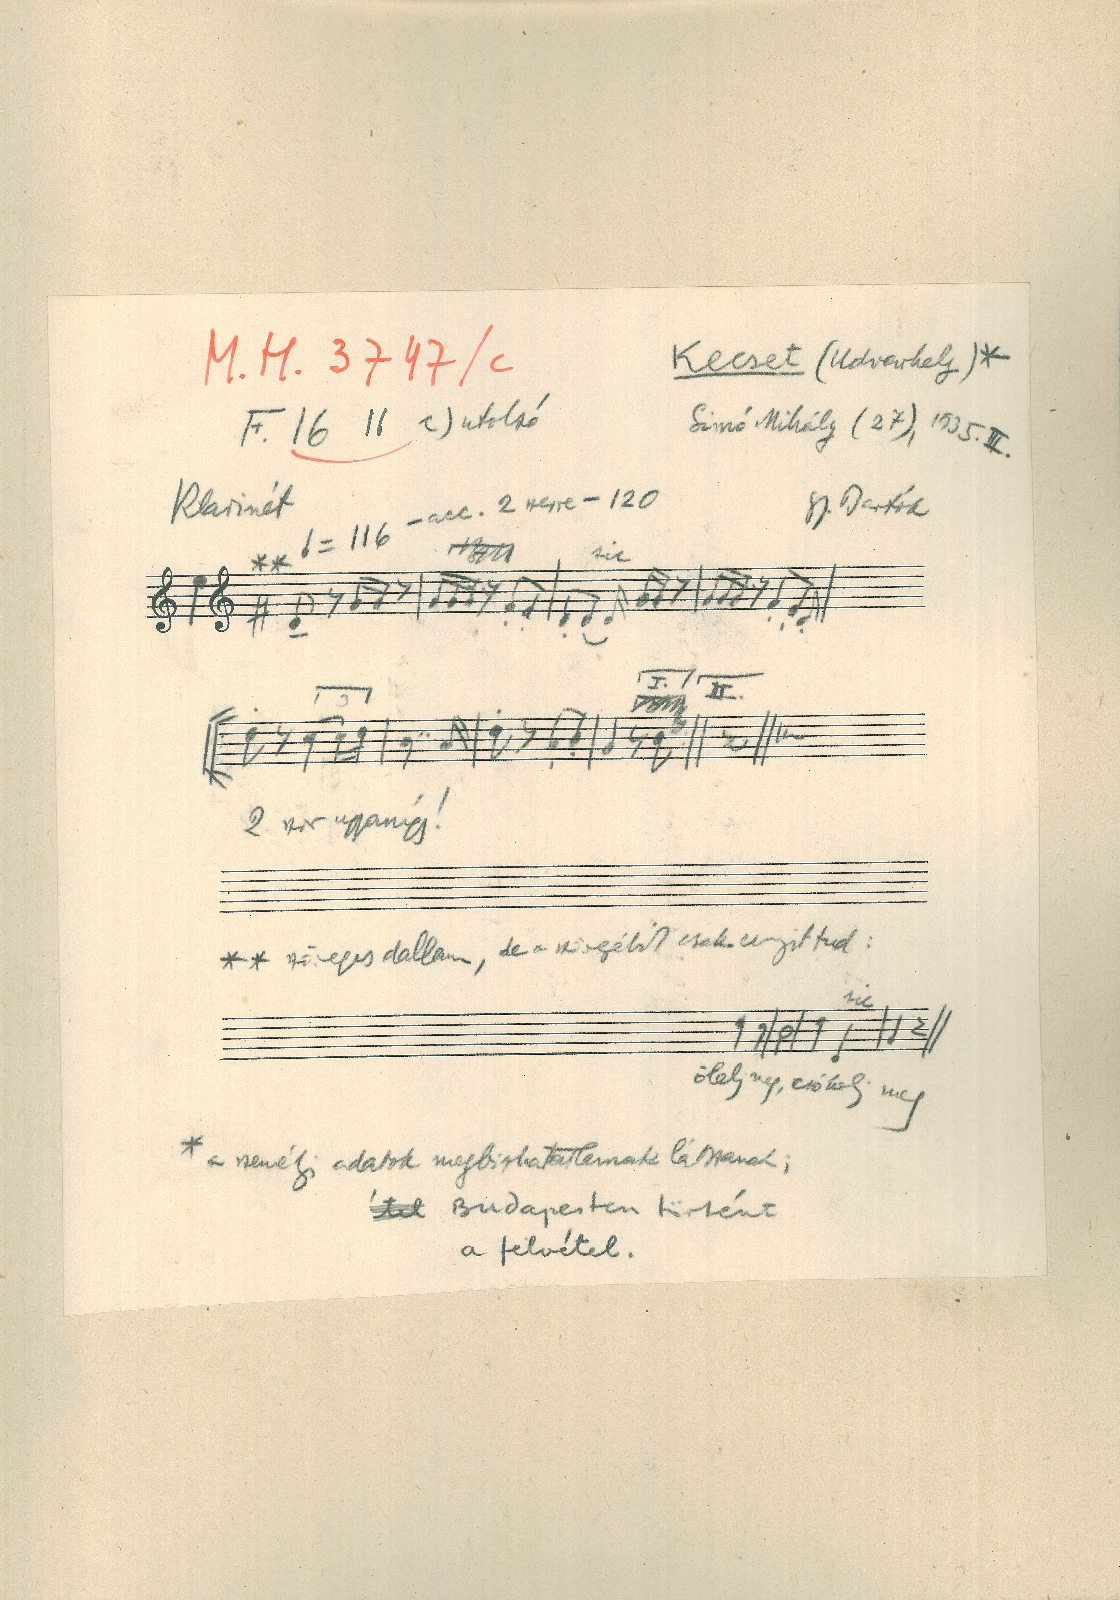 M. H. 3747/c
Kecset (Udvarhely)*
F. 16 11 c) utolsó
Simó Mihály (27), 1935. III.
Klarinét
gy. Bartók
= 116 - acc. 2 - 120
**
sic
3
I. II.
2 szor ugyanígy!
** szöveges dallam, de a szövegéből csak ennyit tud:
sic
ölelj meg, csókolj meg
* a személyi adatok megbízhatatlannak látszanak;
Budapesten történt
a felvétel.